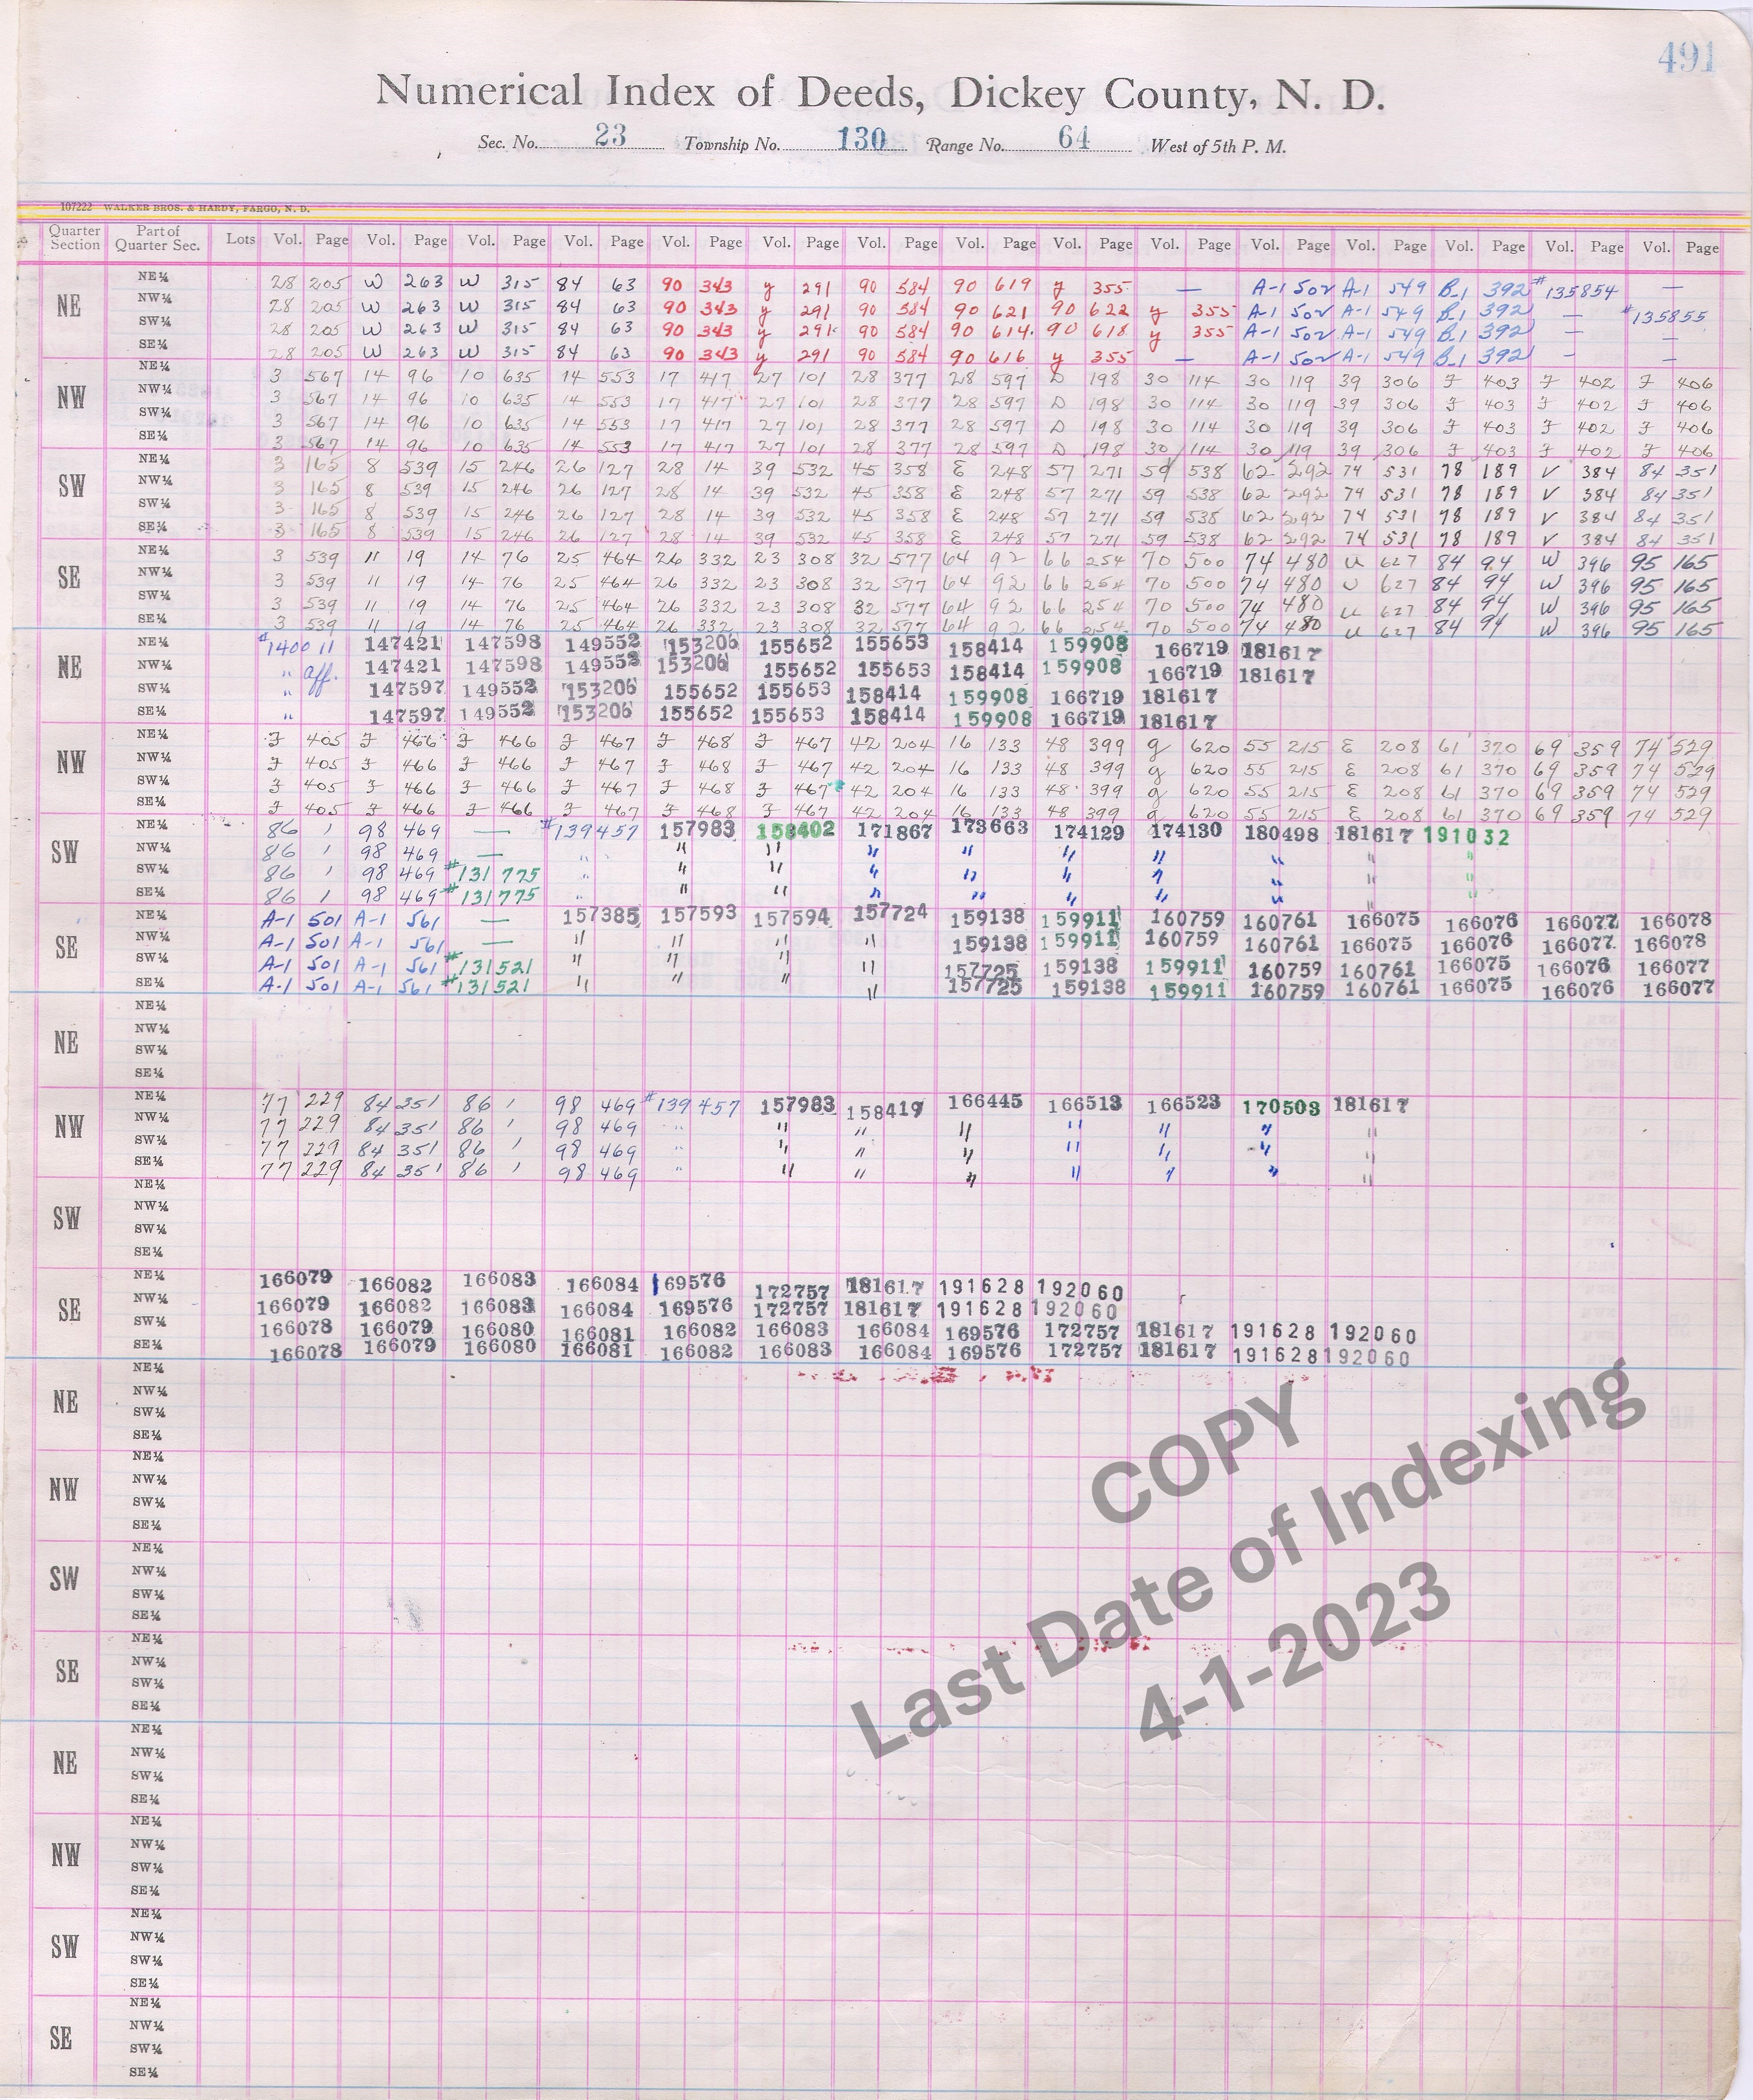 491
Numerical Index of Deeds, Dickey County, N. D.
Sec. No. 23 Township No. 130 Range No. 64 West of 5th P. M.
107222 WALKER BROS. & HARDY, FARGO, N. D.
Quarter Section Part of Quarter Sec. Lots Vol. Page Vol. Page Vol. Page Vol. Page Vol. Page Vol. Page Vol. Page Vol. Page Vol. Page Vol. Page Vol. Page Vol. Page Vol. Page Vol. Page Vol. Page
NE
NE¼ 28 205 W 263 W 315 84 63 90 343 y 291 90 584 90 619 y 355 — A-1 502 A-1 549 B-1 392 #135854 —
NW¼ 28 205 W 263 W 315 84 63 90 343 y 291 90 584 90 621 90 622 y 355 A-1 502 A-1 549 B-1 392 — #135855
SW¼ 28 205 W 263 W 315 84 63 90 343 y 291 90 584 90 614 90 618 y 355 A-1 502 A-1 549 B-1 392 — —
SE¼ 28 205 W 263 W 315 84 63 90 343 y 291 90 584 90 616 y 355 — A-1 502 A-1 549 B-1 392 — —
NW
NE¼ 3 567 14 96 10 635 14 553 17 417 27 101 28 377 28 597 D 198 30 114 30 119 39 306 F 403 F 402 F 406
NW¼ 3 567 14 96 10 635 14 553 17 417 27 101 28 377 28 597 D 198 30 114 30 119 39 306 F 403 F 402 F 406
SW¼ 3 567 14 96 10 635 14 553 17 417 27 101 28 377 28 597 D 198 30 114 30 119 39 306 F 403 F 402 F 406
SE¼ 3 567 14 96 10 635 14 553 17 417 27 101 28 377 28 597 D 198 30 114 30 119 39 306 F 403 F 402 F 406
SW
NE¼ 3 165 8 539 15 246 26 127 28 14 39 532 45 358 E 248 57 271 59 538 62 292 74 531 78 189 V 384 84 351
NW¼ 3 165 8 539 15 246 26 127 28 14 39 532 45 358 E 248 57 271 59 538 62 292 74 531 78 189 V 384 84 351
SW¼ 3 165 8 539 15 246 26 127 28 14 39 532 45 358 E 248 57 271 59 538 62 292 74 531 78 189 V 384 84 351
SE¼ 3 165 8 539 15 246 26 127 28 14 39 532 45 358 E 248 57 271 59 538 62 292 74 531 78 189 V 384 84 351
SE
NE¼ 3 539 11 19 14 76 25 464 26 332 23 308 32 577 64 92 66 254 70 500 74 480 U 627 84 94 W 396 95 165
NW¼ 3 539 11 19 14 76 25 464 26 332 23 308 32 577 64 92 66 254 70 500 74 480 U 627 84 94 W 396 95 165
SW¼ 3 539 11 19 14 76 25 464 26 332 23 308 32 577 64 92 66 254 70 500 74 480 U 627 84 94 W 396 95 165
SE¼ 3 539 11 19 14 76 25 464 26 332 23 308 32 577 64 92 66 254 70 500 74 480 U 627 84 94 W 396 95 165
NE
NE¼ #140011 147421 147598 149552 153206 155652 155653 158414 159908 166719 181617
NW¼ " Aff. 147421 147598 149552 153206 155652 155653 158414 159908 166719 181617
SW¼ " 147597 149552 153206 155652 155653 158414 159908 166719 181617
SE¼ " 147597 149552 153206 155652 155653 158414 159908 166719 181617
NW
NE¼ F 405 F 466 F 466 F 467 F 468 F 467 42 204 16 133 48 399 g 620 55 215 E 208 61 370 69 359 74 529
NW¼ F 405 F 466 F 466 F 467 F 468 F 467 42 204 16 133 48 399 g 620 55 215 E 208 61 370 69 359 74 529
SW¼ F 405 F 466 F 466 F 467 F 468 F 467 42 204 16 133 48 399 g 620 55 215 E 208 61 370 69 359 74 529
SE¼ F 405 F 466 F 466 F 467 F 468 F 467 42 204 16 133 48 399 g 620 55 215 E 208 61 370 69 359 74 529
SW
NE¼ 86 1 98 469 — #139457 157983 158402 171867 173663 174129 174130 180498 181617 191032
NW¼ 86 1 98 469 — " " " " " " " " " "
SW¼ 86 1 98 469 #131775 " " " " " " " " " "
SE¼ 86 1 98 469 #131775 " " " " " " " " " "
SE
NE¼ A-1 501 A-1 561 — 157385 157593 157594 157724 159138 159911 160759 160761 166075 166076 166077 166078
NW¼ A-1 501 A-1 561 — " " " " 159138 159911 160759 160761 166075 166076 166077 166078
SW¼ A-1 501 A-1 561 #131521 " " " " 157725 159138 159911 160759 160761 166075 166076 166077
SE¼ A-1 501 A-1 561 #131521 " " " " 157725 159138 159911 160759 160761 166075 166076 166077
NE
NE¼
NW¼
SW¼
SE¼
NW
NE¼ 77 229 84 351 86 1 98 469 #139457 157983 158419 166445 166513 166523 170503 181617
NW¼ 77 229 84 351 86 1 98 469 " " " " " " " "
SW¼ 77 229 84 351 86 1 98 469 " " " " " " " "
SE¼ 77 229 84 351 86 1 98 469 " " " " " " " "
SW
NE¼
NW¼
SW¼
SE¼
SE
NE¼ 166079 166082 166083 166084 169576 172757 181617 191628 192060
NW¼ 166079 166082 166083 166084 169576 172757 181617 191628 192060
SW¼ 166078 166079 166080 166081 166082 166083 166084 169576 172757 181617 191628 192060
SE¼ 166078 166079 166080 166081 166082 166083 166084 169576 172757 181617 191628 192060
NE
NE¼
NW¼
SW¼
SE¼
NW
NE¼
NW¼
SW¼
SE¼
SW
NE¼
NW¼
SW¼
SE¼
SE
NE¼
NW¼
SW¼
SE¼
NE
NE¼
NW¼
SW¼
SE¼
NW
NE¼
NW¼
SW¼
SE¼
SW
NE¼
NW¼
SW¼
SE¼
SE
NE¼
NW¼
SW¼
SE¼
COPY
Last Date of Indexing
4-1-2023